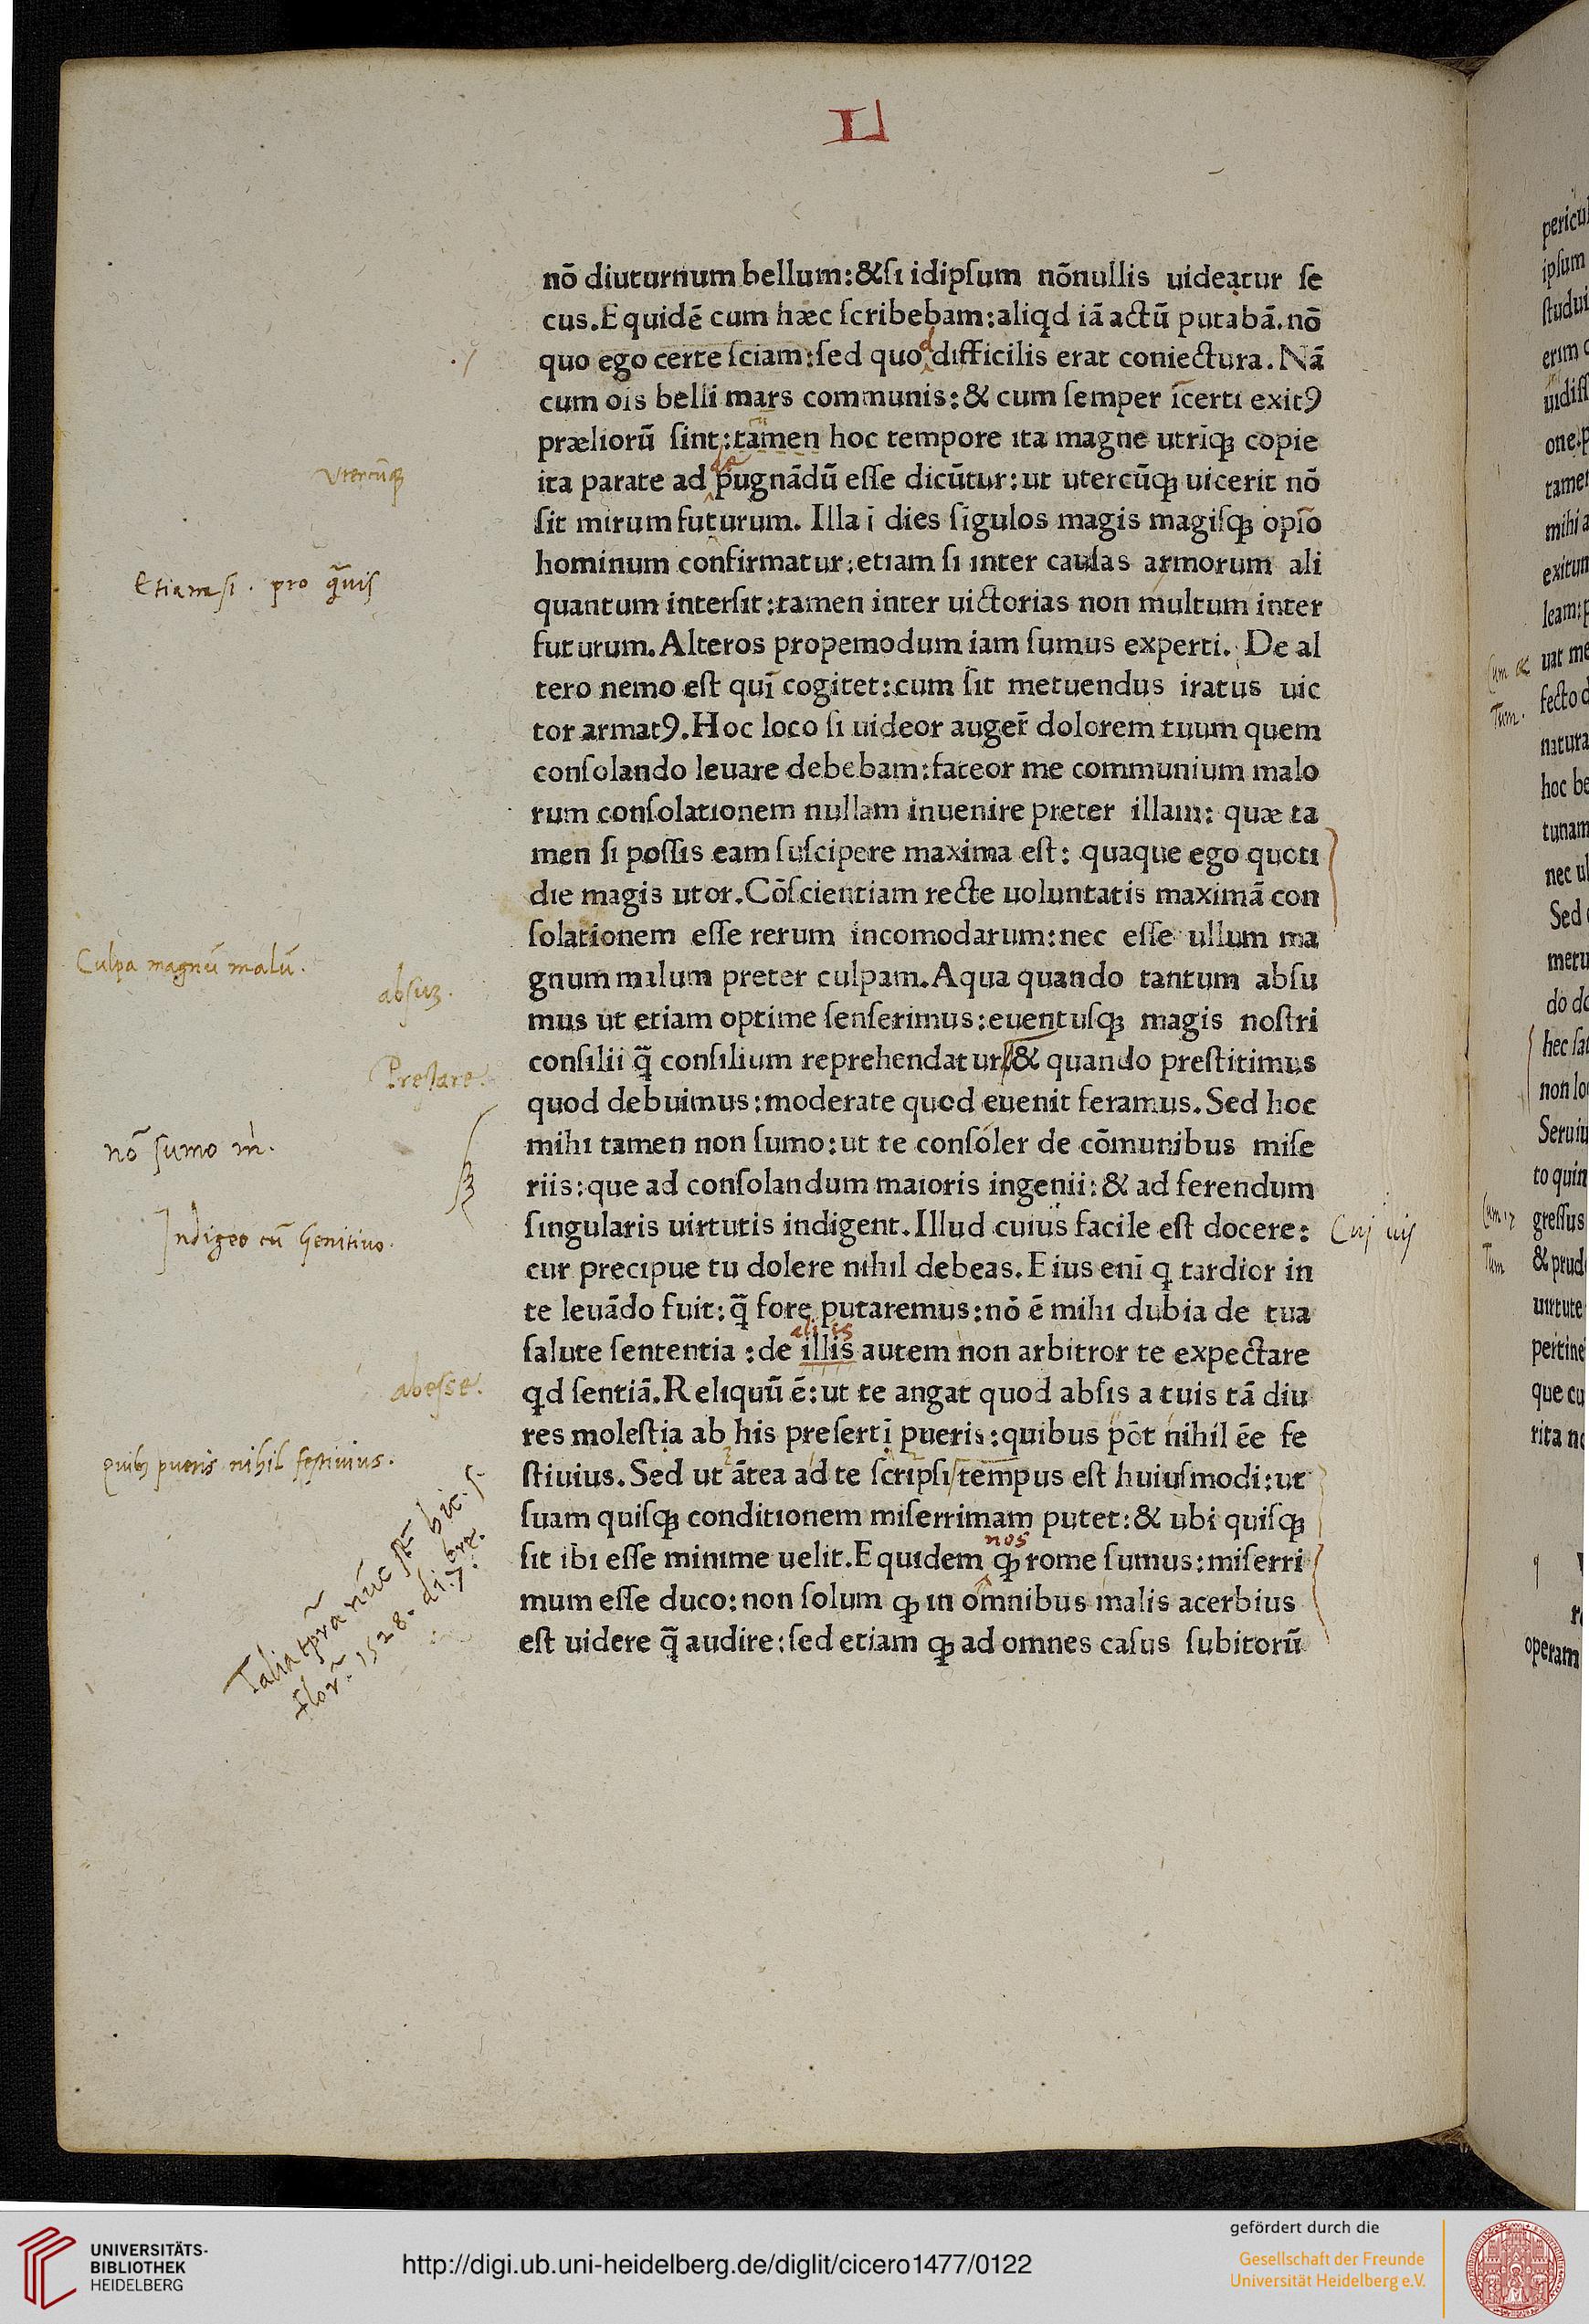 LI
nō diuturnum bellum:&ſi idipſum nōnullis uideatur ſe
cus.Equidē cum hæc ſcribebam:aliqd iā actū putabā.nō
quo ego certe ſciam:ſed quo difficilis erat coniectura.Nā
d
cum oīs belli mars communis:& cum ſemper īcerti exitꝰ
præliorū ſint:tamen hoc tempore ita magne utriqꝫ copie
ita parate ad pugnādū eſſe dicūtur:ut utercūqꝫ uicerit nō
de
Utercūqꝫ
ſit mirum futurum. Illa ī dies ſīgulos magis magiſqꝫ opīo
hominum confirmatur:etiam ſi inter cauſas armorum ali
Etiamſi . pro quāuis
quantum interſit:tamen inter uictorias non multum inter
futurum.Alteros propemodum iam ſumus experti. De al
tero nemo eſt quī cogitet:cum ſit metuendus iratus uic
tor armatꝰ.Hoc loco ſi uideor auger̄ dolorem tuum quem
conſolando leuare debebam:fateor me communium malo
rum conſolationem nullam inuenire preter illam: quæ ta
men ſi poſſis eam ſuſcipere maxima eſt: quaque ego quoti
die magis utor.Cōſcientiam recte uoluntatis maximā con
ſolationem eſſe rerum incomodarum:nec eſſe ullum ma
Culpa magnū malū.
gnum malum preter culpam.Aqua quando tantum abſu
abſuꝫ.
mus ut etiam optime ſenſerimus:euentuſqꝫ magis noſtri
conſilii q̄ conſilium reprehendatur/& quando preſtitimus
Preſtare.
quod debuimus:moderate quod euenit feramus.Sed hoc
mihi tamen non ſumo:ut te conſoler de cōmunibus miſe
nō ſumo m.
riis:que ad conſolandum maioris ingenii:& ad ferendum
ſingularis uirtutis indigent.Illud cuius facile eſt docere:
Indigeo cū Genitiuo.
cur precipue tu dolere nihil debeas.Eius enī q tardior in
te leuādo fuit:q̄ fore putaremus:nō ē mihi dubia de tua
ſalute ſententia :de illis autem non arbitror te expectare
qd ſentiā.Reliquū ē:ut te angat quod abſis a tuis tā diu
abeſſe.
res moleſtia ab his preſertī pueris:quibus pōt nihil ēe fe
quibꝫ pueris nihil feſtiuius.
ſtiuius.Sed ut ātea ad te ſcripſi/tempus eſt huiuſmodi:ut
ſuam quiſqꝫ conditionem miſerrimam putet:& ubi quiſqꝫ
nos
ſit ibi eſſe minime uelit.Equidem qꝫ rome ſumus:miſerri
mum eſſe duco:non ſolum qꝫ in omnibus malis acerbius
eſt uidere q̄ audire:ſed etiam qꝫ ad omnes caſus ſubitorū
UNIVERSITÄTS-
BIBLIOTHEK
HEIDELBERG
http://digi.ub.uni-heidelberg.de/diglit/cicero1477/0122
gefördert durch die
Gesellschaft der Freunde
Universität Heidelberg e.V.